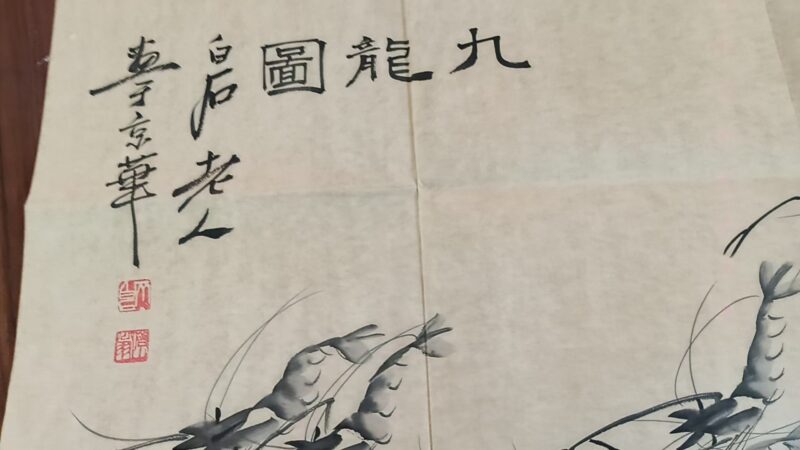 九龍圖
白石老人
畫于京華